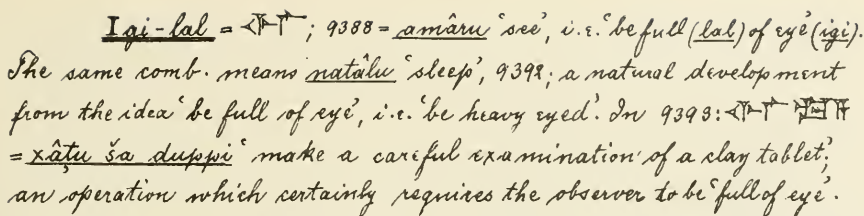 Igi-lal = 𒅆𒇲; 9388 = amâru 'see', i.e. 'be full (lal) of eye' (igi).
The same comb. means natâlu 'sleep', 9392; a natural development
from the idea 'be full of eye', i.e. 'be heavy eyed'. In 9393: 𒅆𒇲
= xâṭu ša duppi 'make a careful examination' of a clay tablet;
an operation which certainly requires the observer to be 'full of eye'.